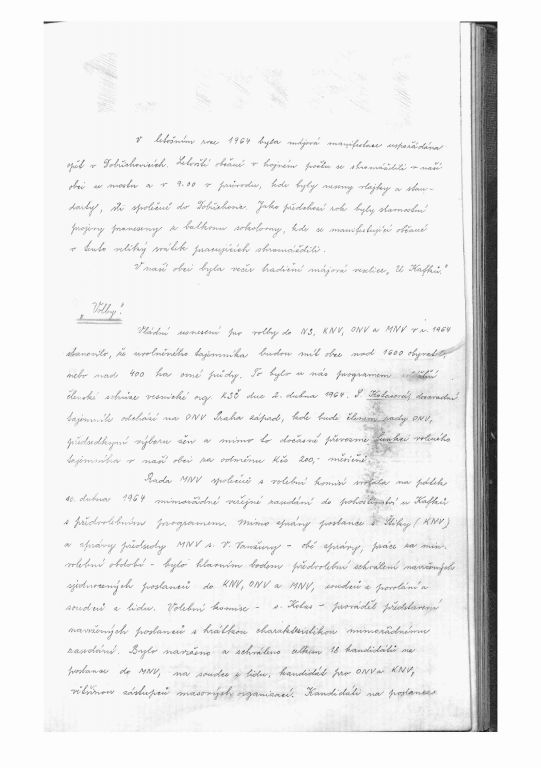 V letošním roce 1964 byla májová manifestace uspořádána
opět v Dobřichovicích. Letovští občané v hojném počtu se shromáždili v naší
obci u mostu a v 9.00 v průvodu, kde byly neseny vlajky a stan-
darty, šli společně do Dobřichovic. Jako předchozí rok byly slavnostní
projevy proneseny z balkonu sokolovny, kde se manifestující občané
v tento veliký svátek pracujících shromáždili.
V naší obci byla večer tradiční májová veselice "U Kafků."
"Volby".
Vládní usnesení pro volby do NS, KNV, ONV a MNV v r. 1964
stanovilo, že uvolněného tajemníka budou mít obce nad 1600 obyvatel
nebo nad 400 ha orné půdy. To bylo u nás programem
členské schůze vesnické org. KSČ dne 2. dubna 1964. S. dosavadní
tajemník odchází na ONV Praha západ, kde bude členem rady ONV,
předsedkyní výboru žen a mimo to dočasně převezme funkci voleného
tajemníka v naší obci za odměnu Kčs 200,- měsíčně.
Rada MNV společně s volební komisí svolala na pátek
dubna 1964 mimořádné veřejné zasedání do pohostinství u Kafků
s předvolebním programem. Mimo zprávy poslance s. (KNV)
a zprávy předsedy MNV s. V. Vančury - obě zprávy, práce za min.
volební období - bylo hlavním bodem předvolební schválení navržených
sjednocených poslanců do KNV, ONV a MNV, soudců z povolání a
soudců z lidu. Volební komise - s. Kolas - prováděl představení
navržených poslanců s krátkou charakteristikou mimořádnému
zasedání. Bylo navrženo a schváleno celkem 18 kandidátů na
poslance do MNV, na soudce z lidu, kandidát pro ONV a KNV,
většinou zástupců masových organizací. Kandidáti na poslance